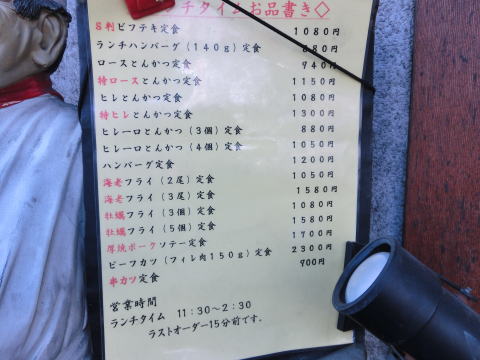 チタイムお品書き◇
S判ビフテキ定食 1080円
ランチハンバーグ(140g)定食 880円
ロースとんかつ定食 940円
特ロースとんかつ定食 1150円
ヒレとんかつ定食 1080円
特ヒレとんかつ定食 1300円
ヒレ一口とんかつ(3個)定食 880円
ヒレ一口とんかつ(4個)定食 1050円
ハンバーグ定食 1200円
海老フライ(2尾)定食 1050円
海老フライ(3尾)定食 1580円
牡蠣フライ(3個)定食 1080円
牡蠣フライ(5個)定食 1580円
厚焼ポークソテー定食 1700円
ビーフカツ(フィレ肉150g)定食 2300円
串カツ定食 900円
営業時間
ランチタイム 11:30~2:30
ラストオーダー15分前です。